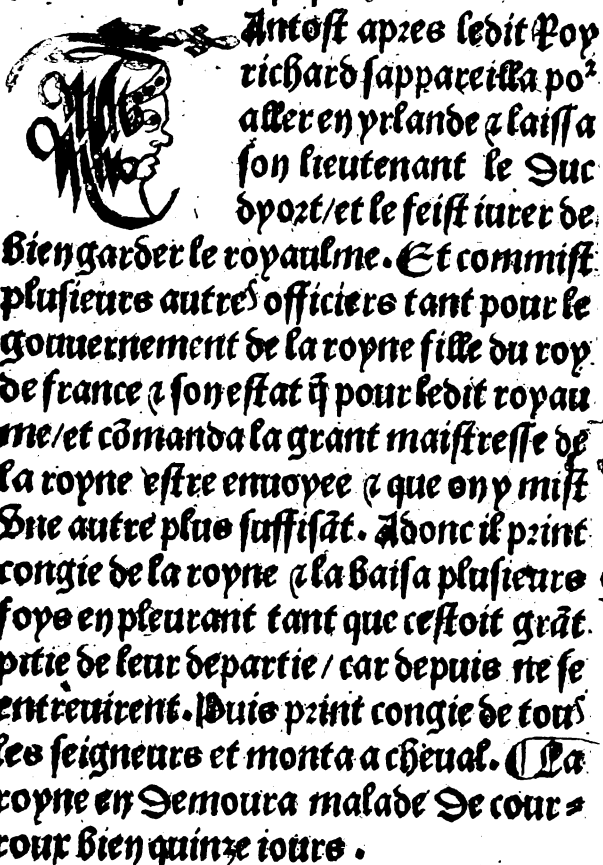 TAntost apres ledit Roy
richard sappareilla poꝛ
aller en yrlande ⁊ laissa
son lieutenant le Duc
dyort/et le feist iurer de
bien garder le royaulme. Et commist
plusieurs autres officiers tant pour le
gouuernement de la royne fille du roy
de france ⁊ son estat q̃ pour ledit royau
me/et cõmanda la grant maistresse de
la royne estre enuoyee ⁊ que on y mist
vne autre plus suffisãt. Adonc il print
congie de la royne ⁊ la baisa plusieurs
foys en pleurant tant que cestoit grãt
pitie de leur departie/car depuis ne se
entreuirent. Puis print congie de tous
les seigneurs et monta a cheual. ¶ La
royne en Demoura malade De cour⸗
roux bien quinze iours.